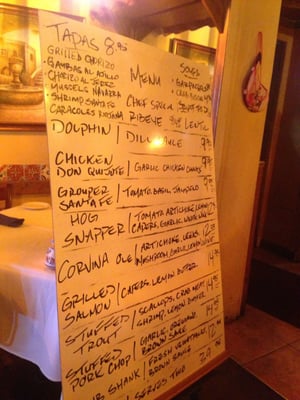 TAPAS 8.95
GRILLED CHORIZO
GAMBAS AL AJILLO
CHORIZO AL JEREZ
MUSSELS NAVARRA
SHRIMP SANTA FE
CARACOLES
MENU
SOUPS
GAZPACHO
CHEF SPECIAL
RIBEYE
LENTIL
DOLPHIN / DILL SAUCE
CHICKEN
DON QUIJOTE / GARLIC CHICKEN CHUNKS
GROUPER
SANTA FE / TOMATO, BASIL, JALAPEÑO
HOG
SNAPPER / TOMATO, ARTICHOKE, LEMON
CAPERS, GARLIC, WHITE WINE
CORVINA OLE / ARTICHOKE, LEEKS,
MUSHROOM, GARLIC, LEMON
GRILLED
SALMON / CAPERS, LEMON BUTTER
STUFFED
TROUT / SCALLOPS, CRAB MEAT
SHRIMP, LEMON BUTTER
STUFFED
PORK CHOP / GARLIC, OREGANO
BROWN SAUCE
SHANK / FRESH VEGETABLES
BROWN SAUCE
SERVES TWO